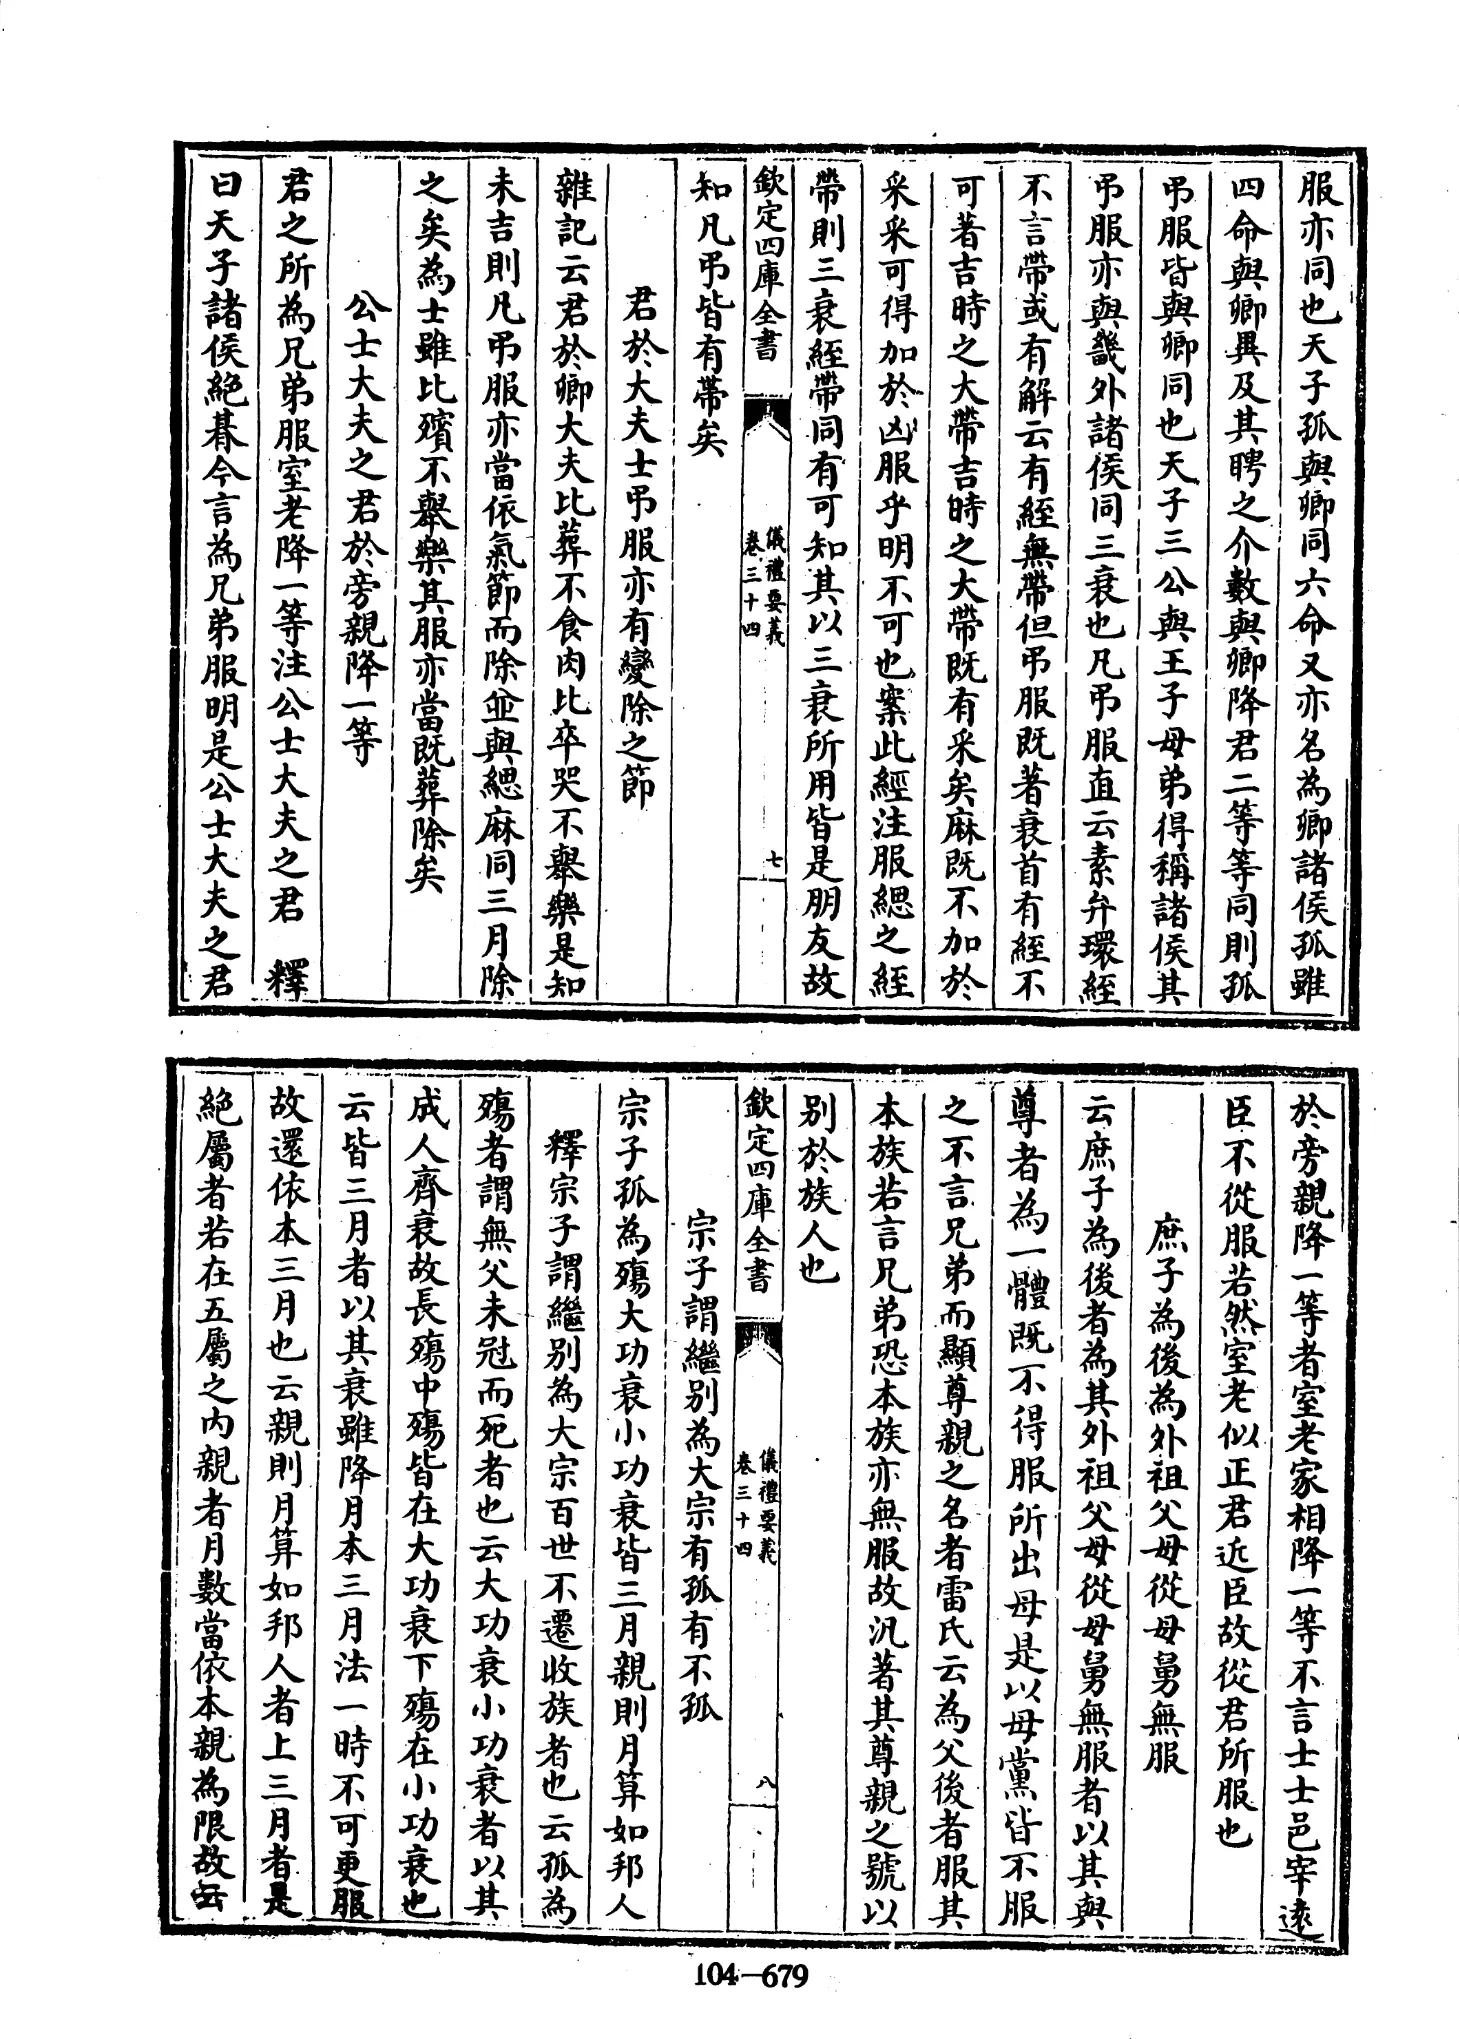 服亦同也天子孤與卿同六命又亦名為卿諸侯孤雖
四命與卿異及其聘之介數與卿降君二等等同則孤
弔服皆與卿同也天子三公與王子母弟得稱諸侯其
弔服亦與畿外諸侯同三衰也凡弔服直云素弁環絰
不言帶或有解云有絰無帶但弔服既著衰首有絰不
可著吉時之大帶吉時之大帶既有采矣麻既不加於
采采可得加於凶服乎明不可也案此經注服緦之絰
帶則三衰絰帶同有可知其以三衰所用皆是朋友故
欽定四庫全書
儀禮要義
卷三十四
七
知凡弔皆有帶矣
君於大夫士弔服亦有變除之節
雜記云君於卿大夫比葬不食肉比卒哭不舉樂是知
未吉則凡弔服亦當依氣節而除並與緦麻同三月除
之矣為士雖比殯不舉樂其服亦當既葬除矣
公士大夫之君於旁親降一等
君之所為兄弟服室老降一等注公士大夫之君 釋
曰天子諸侯絕朞今言為兄弟服明是公士大夫之君
於旁親降一等者室老家相降一等不言士士邑宰遠
臣不從服若然室老似正君近臣故從君所服也
庶子為後為外祖父母從母舅無服
云庶子為後者為其外祖父母從母舅無服者以其與
尊者為一體既不得服所出母是以母黨皆不服
之不言兄弟而顯尊親之名者雷氏云為父後者服其
本族若言兄弟恐本族亦無服故汎著其尊親之號以
别於族人也
欽定四庫全書
儀禮要義
卷三十四
八
宗子謂繼别為大宗有孤有不孤
宗子孤為殤大功衰小功衰皆三月親則月算如邦人
釋宗子謂繼别為大宗百世不遷收族者也云孤為
殤者謂無父未冠而死者也云大功衰小功衰者以其
成人齊衰故長殤中殤皆在大功衰下殤在小功衰也
云皆三月者以其衰雖降月本三月法一時不可更服
故還依本三月也云親則月算如邦人者上三月者是
絕屬者若在五屬之内親者月數當依本親為限故云
104-679